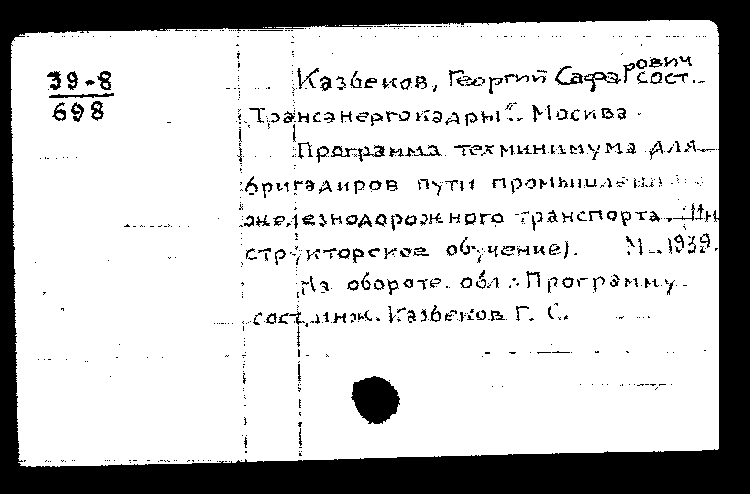 39-8
698
Казбеков, Георгий Сафарович сост.
"Трансэнергокадры". Москва.
Программа техминимума для
бригадиров пути промышленного
железнодорожного транспорта. (Ин
структорское обучение). М. 1939.
На обороте. обл.: Программу
сост. инж. Казбеков Г. С.